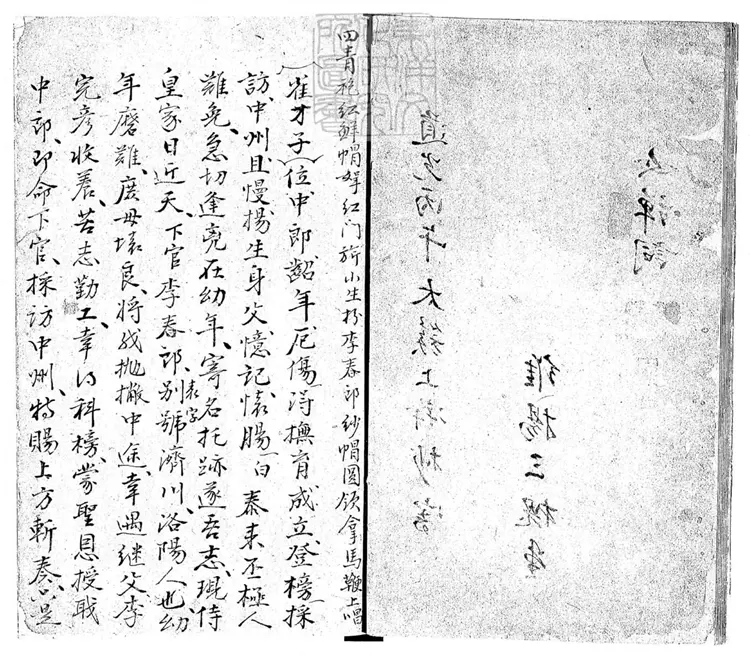 禅詞
維揚三槐堂
道光丙午太簇上澣抄寫
四青袍紅鮮帽紅门旂小生扮李春郎紗帽圓领拿馬鞭上唱
崔才子位中郎齠年厄傷得撫育成立登榜採
訪中州且慢揚生身父憶記懷腸白泰来丕極人
難免急切逢亮在幼年寄名托跡遂吾志琨侍
皇家日近天下官李春郎表字别號濟川洛陽人也幼
年磨難庶母壞良将我抛撇中途幸遇继父李
完彦收养苦志勤工幸得科榜蒙聖恩授戝
中郎即命下官採访中州特賜上方斬奏只是